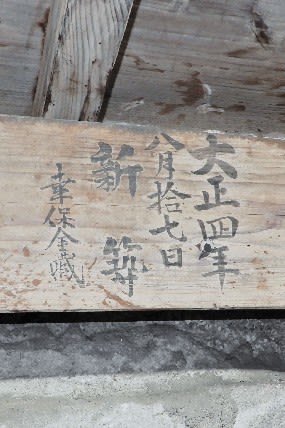 大正四年
八月拾七日
新築
幸保金蔵